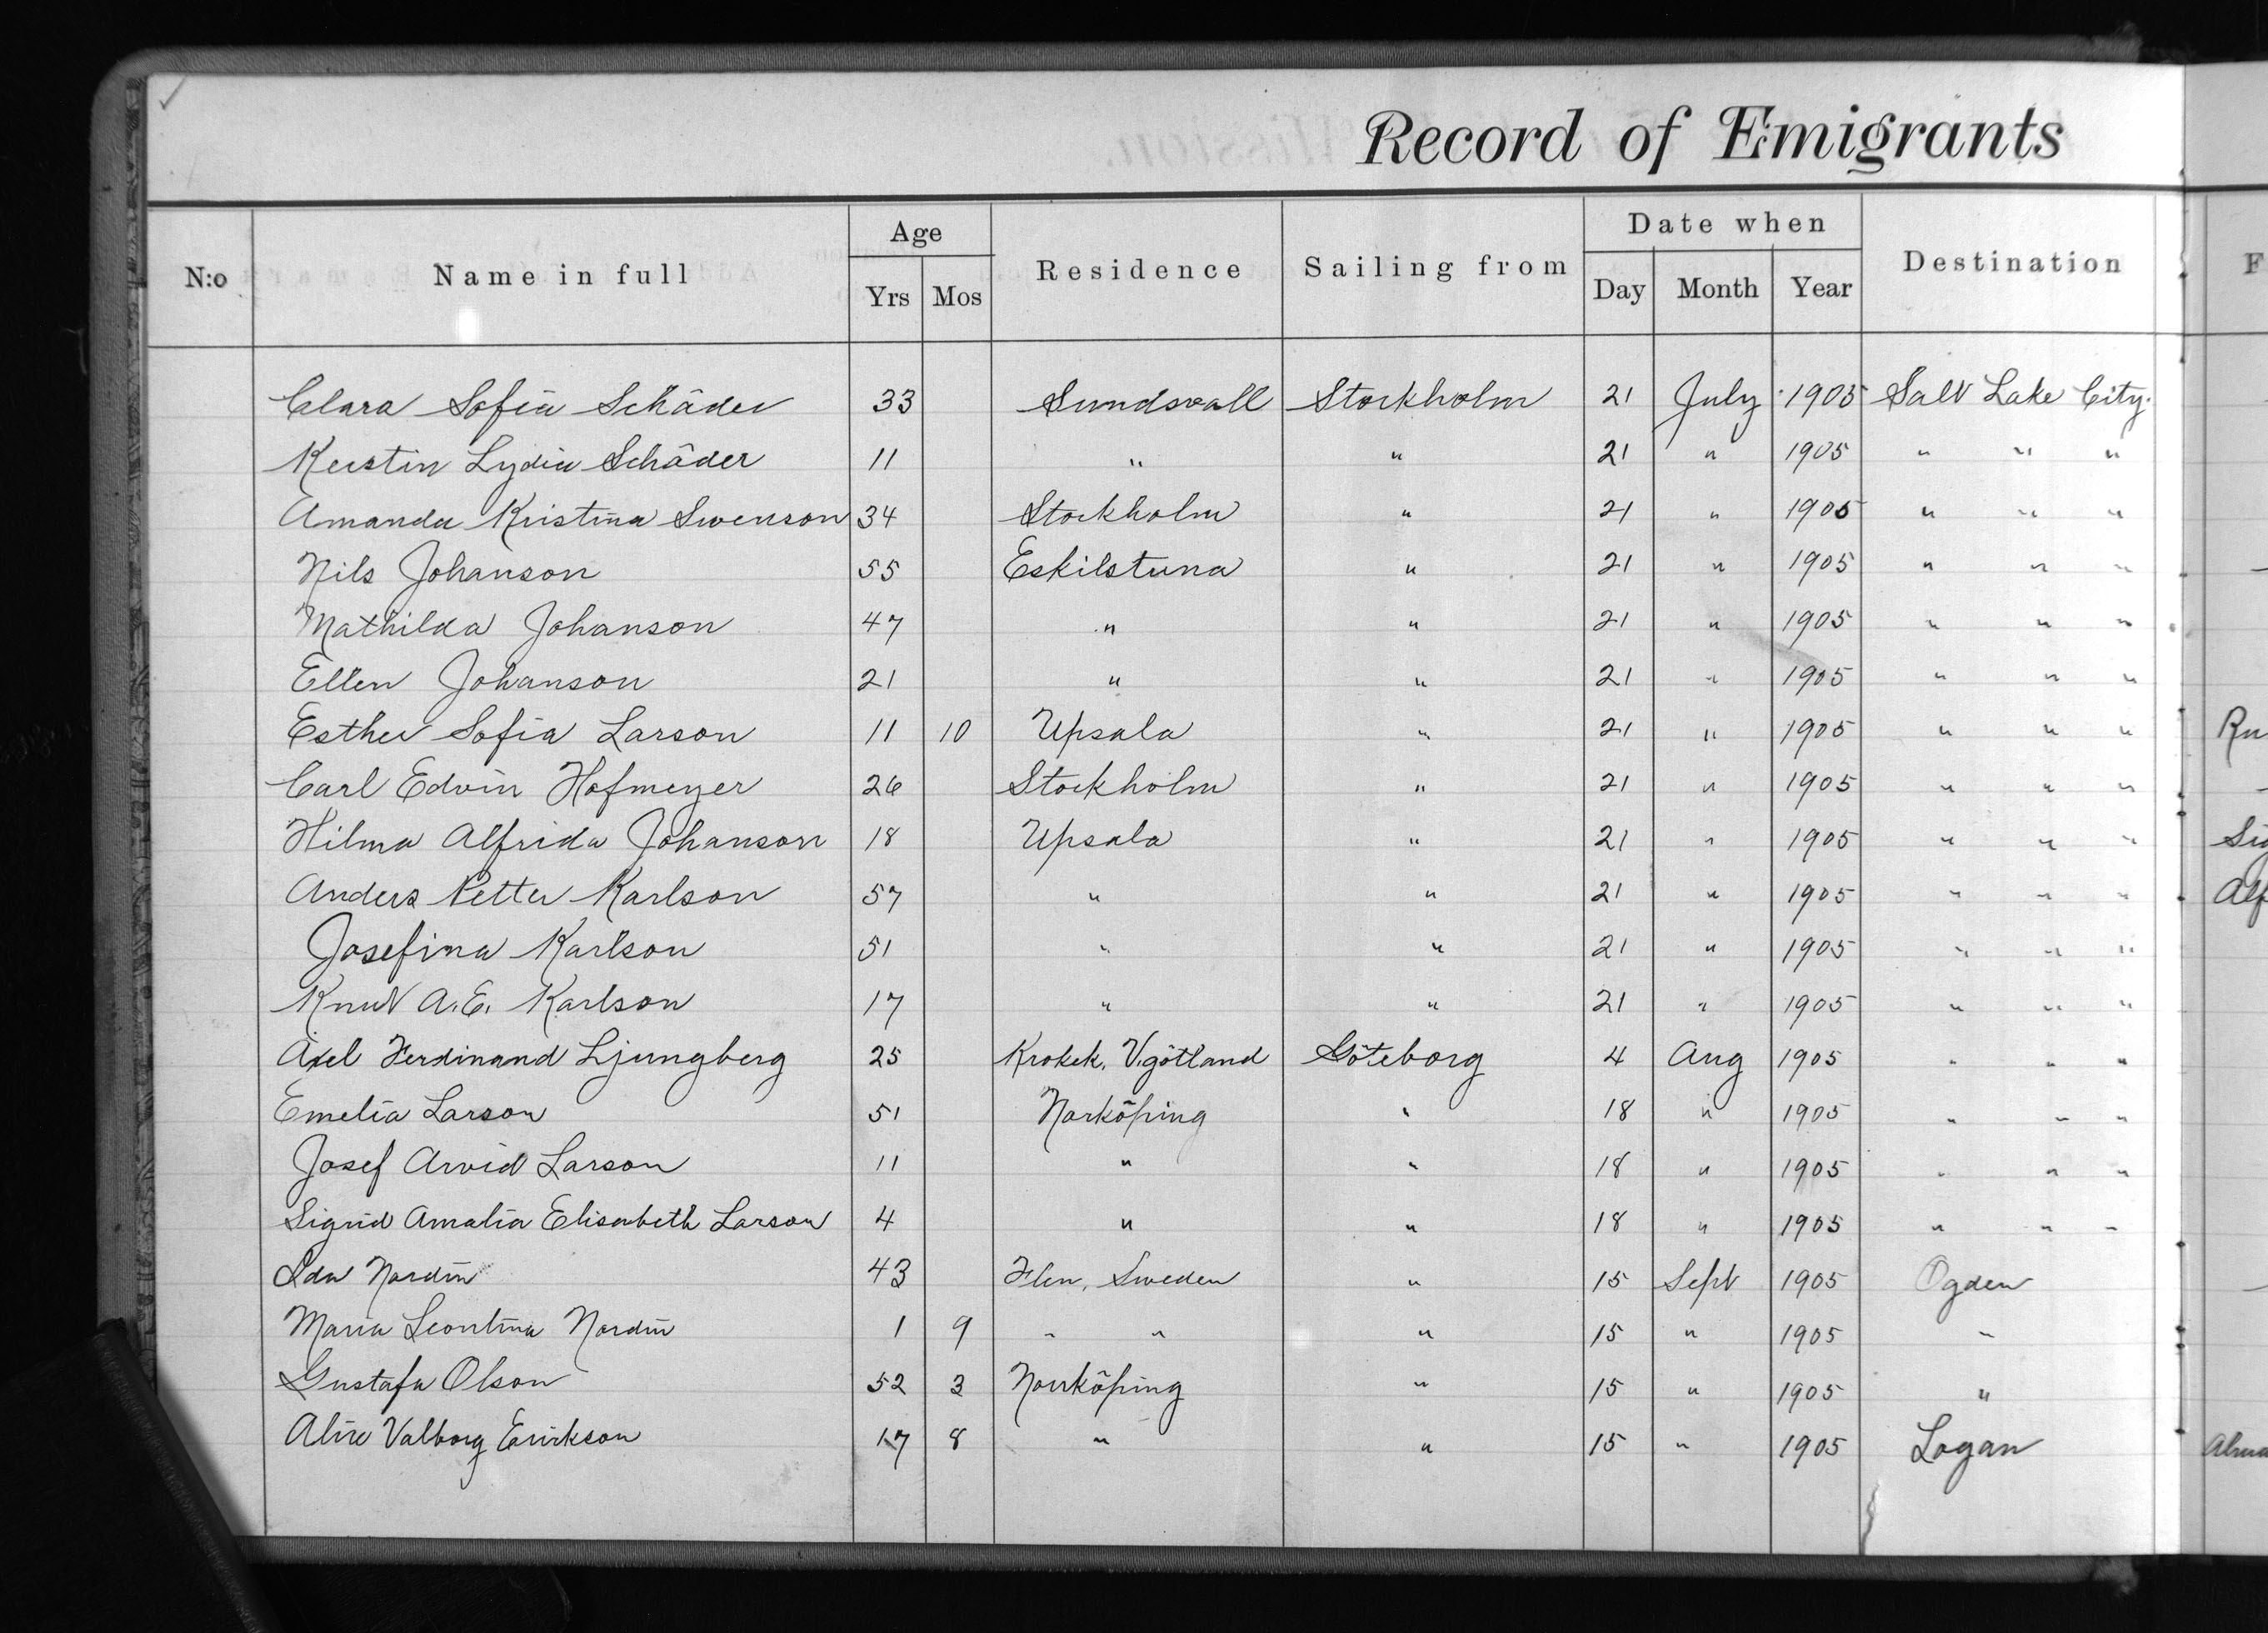 Record of Emigrants
N:o Name in full Age Residence Sailing from Date when Destination F
Yrs Mos Day Month Year
Clara Sofia Schäder 33 Sundsvall Stockholm 21 July 1905 Salt Lake City.
Kerstin Lydia Schäder 11 " " 21 " 1905 " " "
Amanda Kristina Swenson 34 Stockholm " 21 " 1905 " " "
Nils Johanson 55 Eskilstuna " 21 " 1905 " " "
Mathilda Johanson 47 " " 21 " 1905 " " "
Ellen Johanson 21 " " 21 " 1905 " " "
Esther Sofia Larson 11 10 Upsala " 21 " 1905 " " " Ru
Carl Edvin Hofmeyer 26 Stockholm " 21 " 1905 " " "
Hilma Alfrida Johanson 18 Upsala " 21 " 1905 " " " Sig
Anders Petter Karlson 57 " " 21 " 1905 " " " Alf
Josefina Karlson 51 " " 21 " 1905 " " "
Knut A.E. Karlson 17 " " 21 " 1905 " " "
Axel Ferdinand Ljungberg 25 Krokek, V.götland Göteborg 4 Aug 1905 " " "
Emelia Larson 51 Norköping " 18 " 1905 " " "
Josef Arvid Larson 11 " " 18 " 1905 " " "
Sigrid Amalia Elisabeth Larson 4 " " 18 " 1905 " " "
Ida Nordin 43 Flen, Sweden " 15 Sept 1905 Ogden
Maria Leontina Nordin 1 9 " " " 15 " 1905 "
Gustafa Olson 52 3 Norrköping " 15 " 1905 "
Alice Valborg Erickson 17 8 " " 15 " 1905 Logan Alma